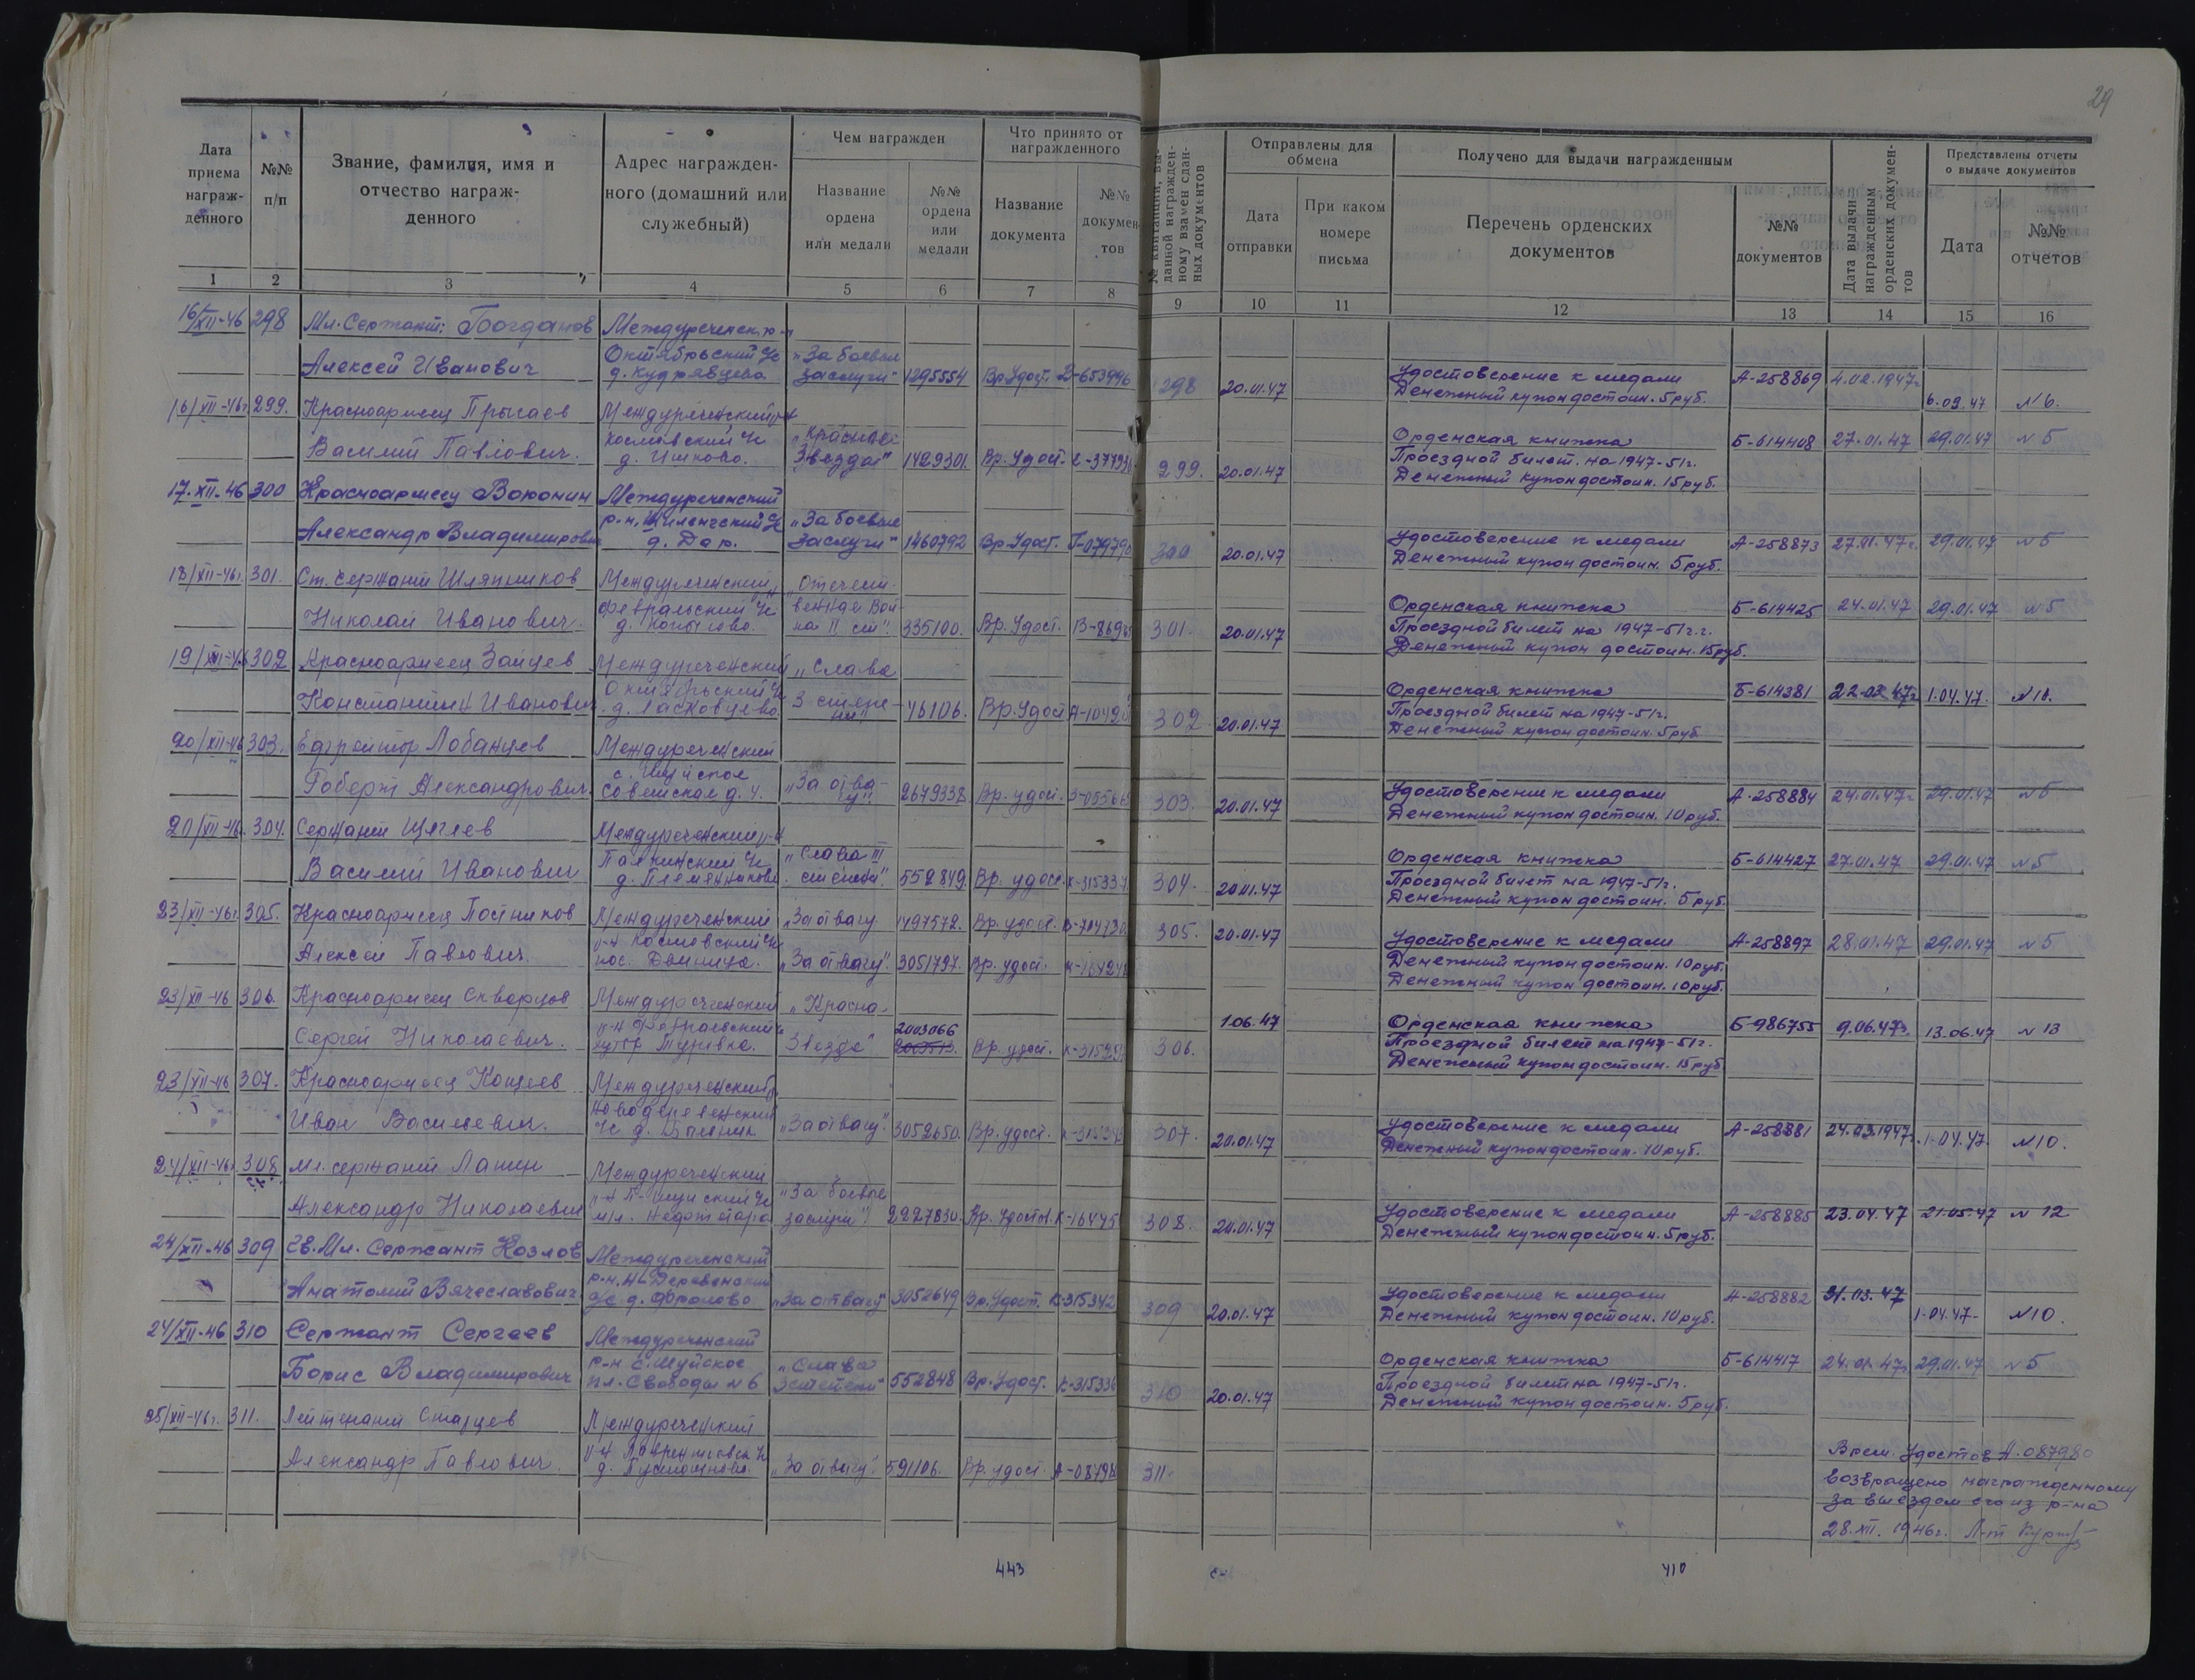 29
Дата приема награжденного
№№ п/п
Звание, фамилия, имя и отчество награжденного
Адрес награжденного (домашний или служебный)
Чем награжден
Название ордена или медали
№№ ордена или медали
Что принято от награжденного
Название документа
№№ документов
№ квитанции, выданной награжденному взамен сданных документов
Отправлены для обмена
Дата отправки
При каком номере письма
Получено для выдачи награжденным
Перечень орденских документов
№№ документов
Дата выдачи награжденным орденских документов
Представлены отчеты о выдаче документов
Дата
№№ отчетов
1 2 3 4 5 6 7 8 9 10 11 12 13 14 15 16
16/XII-46 298 Мл. Сержант: Богданов Междуреченск. р-н
Алексей Иванович Октябрьский с/с д. Кудрявцево "За боевые заслуги" 1295554 Вр.Удост. 298 20.01.47
Удостоверение к медали А-258869 4.02.1947г
Денежный купон достоин. 5 руб. 6.09.47 №6.
16/XII-46г 299. Красноармеец Междуреченский р-н
Василий Павлович. с/с д. Игиково. "Красной Звезды" 1429301. Вр. Удост. 299. 20.01.47
Орденская книжка Б-614408 27.01.47 29.01.47 №5
Проездной билет. на 1947-51г.
Денежный купон достоин. 15 руб.
17.XII.46 300 Красноармеец Воронин Междуреченский
Александр Владимирович р-н, с/с д. Дор. "За боевые заслуги" 1460792 Вр.Удост. 300 20.01.47
Удостоверение к медали А-258873 27.01.47г. 29.01.47 №5
Денежный купон достоин. 5 руб.
18/XII-46г. 301. Ст. сержант Шляпников Междуреченский р-н
Николай Иванович. Февральский с/с д. Копылово. "Отечественная Война II ст". 335100. Вр. Удост. 301. 20.01.47
Орденская книжка Б-614425 24.01.47 29.01.47 №5
Проездной билет на 1947-51г.г.
Денежный купон достоин. 15 руб.
19/XII-46 302 Красноармеец Зайцев Междуреченский "Слава
Константин Иванович Октябрьский с/с д. Ласковцево 3 степени" 46106. Вр.Удост 302 20.01.47
Орденская книжка Б-614381 22.03.47г 1.04.47.
Проездной билет на 1947-51г.
Денежный купон достоин. 5 руб
20/XII-46 303. Ефрейтор Лобанцев Междуреченский
Роберт Александрович. с. Шуйское Советская д. 4. "За отвагу". 2679338 Вр. удост. 303. 20.01.47
Удостоверение к медали А-258884 24.01.47г 29.01.47 №5
Денежный купон достоин. 10 руб.
20/XII-46. 304. Сержант Щяглев Междуреченский р-н
Василий Иванович с/с д. Племянниково "Слава III степени". 552849. Вр. удост. К-315337. 304. 20.01.47
Орденская книжка Б-614427 27.01.47 29.01.47 №5
Проездной билет на 1947-51г.
Денежный купон достоин. 5 руб.
23/XII-46г. 305. Красноармеец Постников Междуреченский "За отвагу 1497572. Вр. удост. 305. 20.01.47
Алексей Павлович. р-н с/с пос. Двиница. "За отвагу". 3051797. Вр. удост.
Удостоверение к медали А-258897 28.01.47 29.01.47 №5
Денежный купон достоин. 10 руб.
Денежный купон достоин. 10 руб.
23/XII-46 306. Красноармеец Скворцов Междуреченский "Красная
Сергей Николаевич. р-н Февральский хутор Туровка. Звезда" 2003066 Вр. удост. 306. 1.06.47
Орденская книжка Б-986755 9.06.47г. 13.06.47 №13
Проездной билет на 1947-51г.
Денежный купон достоин. 15 руб
23/XII-46 307. Красноармеец Концеев Междуреченский
Иван Васильевич. Новодеревенский с/с д. "За отвагу". 3052650. Вр. удост. 307. 20.01.47
Удостоверение к медали А-258881 24.03.1947. 1.04.47. №10.
Денежный купон достоин. 10 руб.
24/XII-46г 308 Мл. сержант Лапин Междуреченский
Александр Николаевич р-н с/с "За боевые заслуги". 2227830. Вр. Удостов. 308. 20.01.47
Удостоверение к медали А-258885 23.04.47 21.05.47 №12
Денежный купон достоин. 5 руб.
24/XII-46 309 Гв. Мл. Сержант Козлов Междуреченский
Анатолий Вячеславович р-н, Н-Деревенский с/с д. Фролово "За отвагу" 3052649 Вр.Удост. К-315342 309 20.01.47
Удостоверение к медали А-258882 31.03.47
Денежный купон достоин. 10 руб. 1.04.47- №10.
24/XII-46 310 Сержант Сергеев Междуреченский
Борис Владимирович р-н с. Шуйское пл. Свободы №6 "Слава 3 степени" 552848 Вр.Удост. К-315336 310 20.01.47
Орденская книжка Б-614417 24.01.47г 29.01.47 №5
Проездной билет на 1947-51г.
Денежный купон достоин. 5 руб.
25/XII-46г. 311. Лейтенант Старцев Междуреченский
Александр Павлович. р-н с/с д. "За отвагу". 591106. Вр. удост. А-087980 311.
Врем. Удостов А.087980
возвращено награжденному
за выездом его из р-на
28.XII.1946г. Л-т
443
410